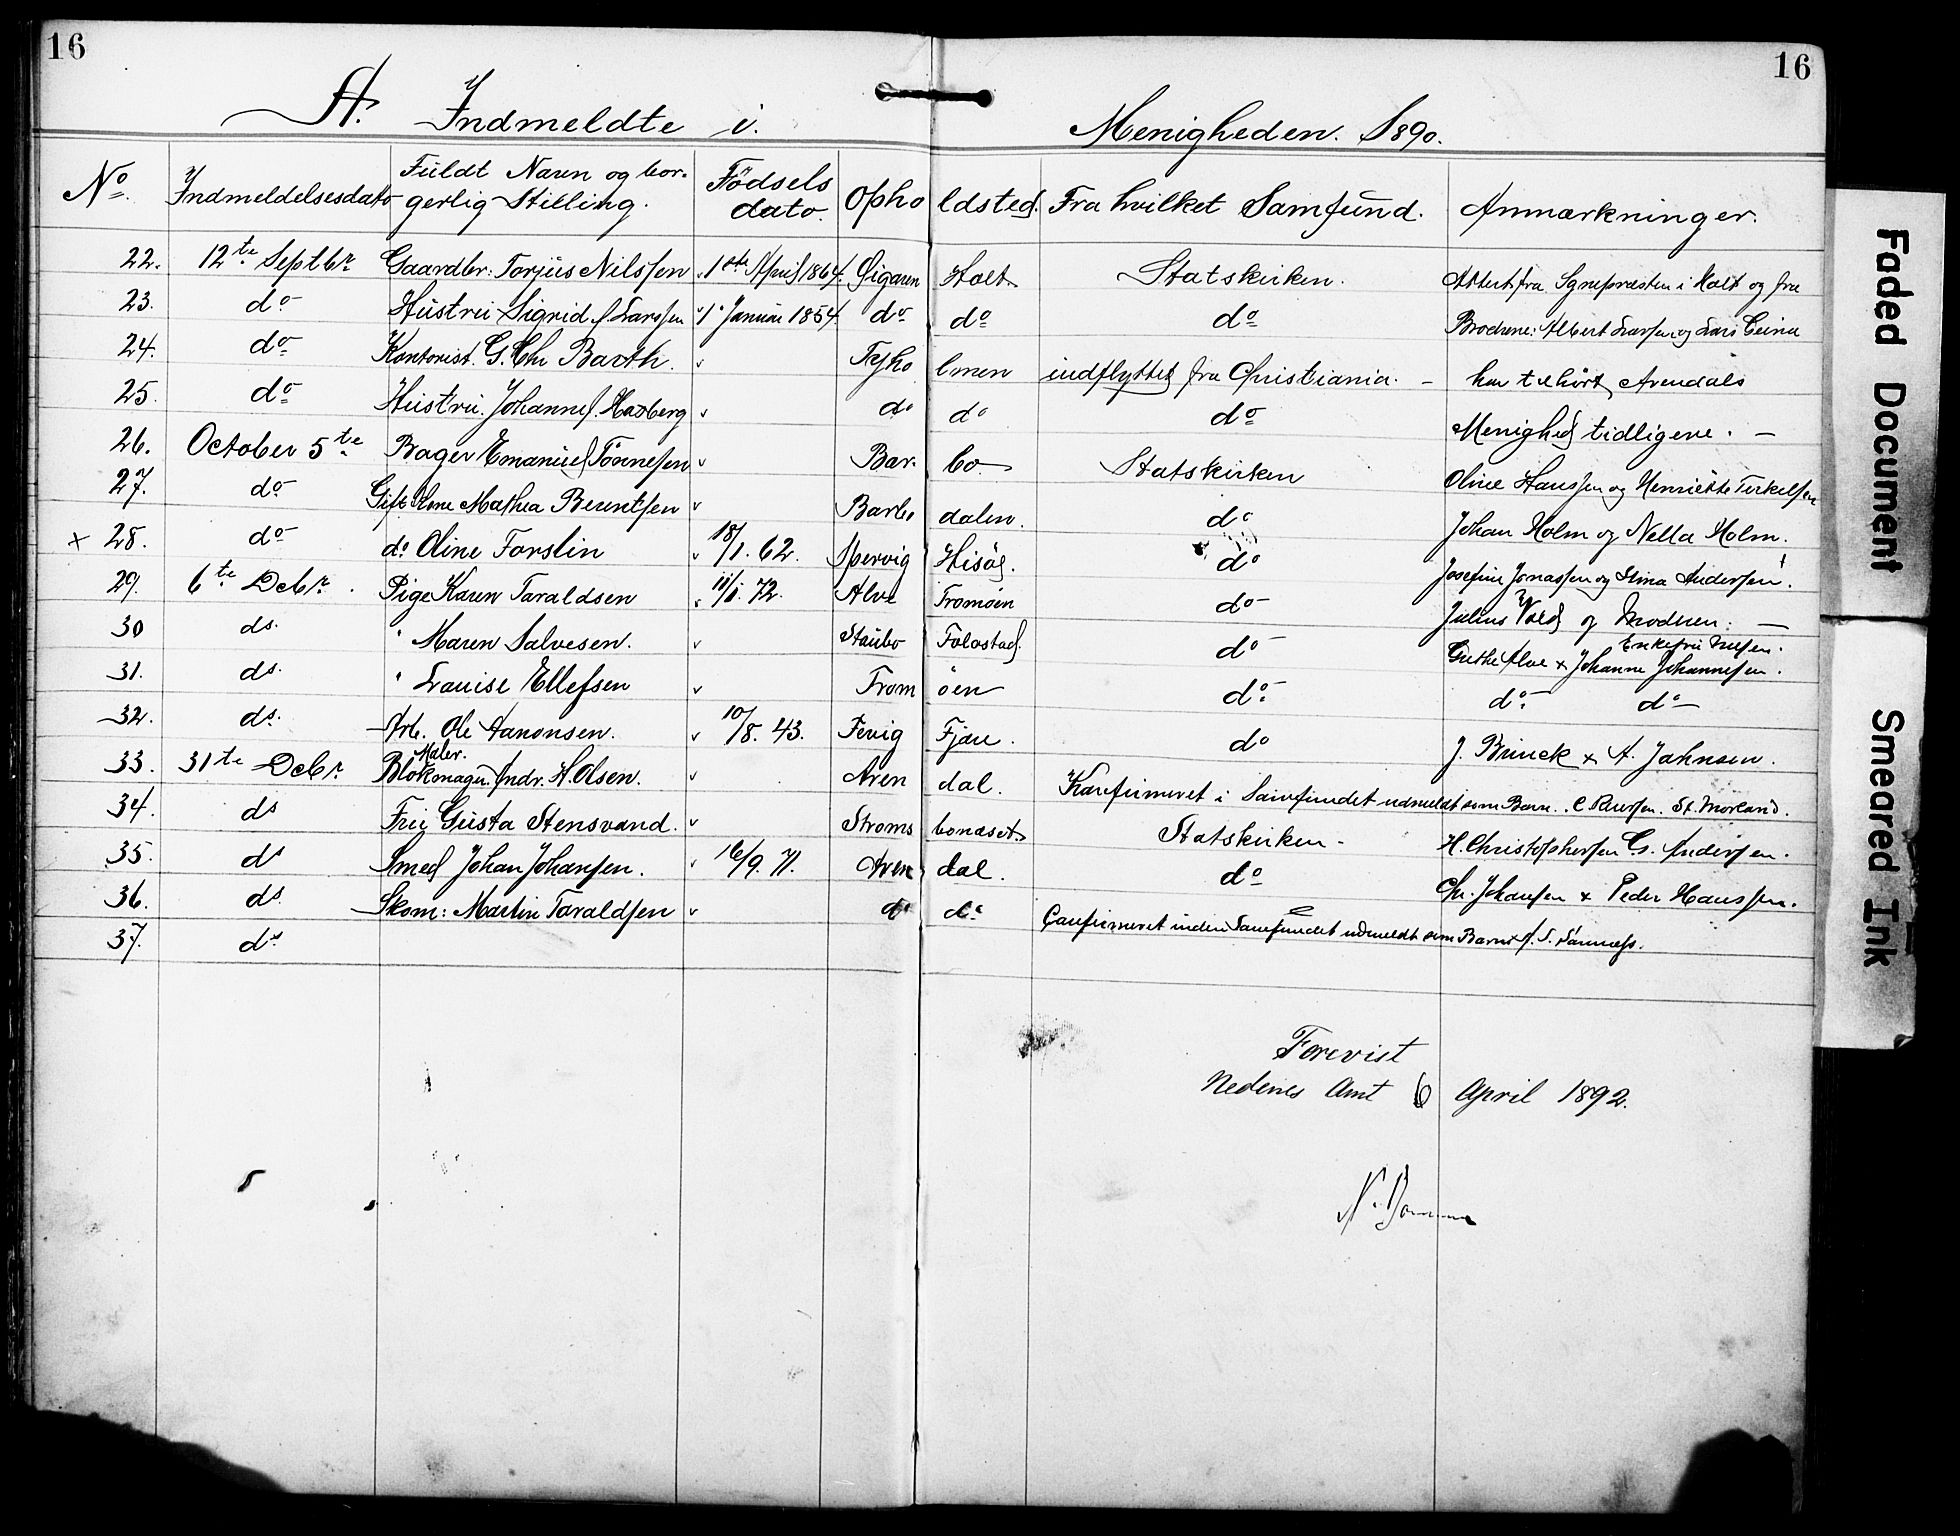 16 16
A. Indmeldte i. Menigheden. 1890.
No. Indmeldelsesdato Fuldt Navn og bor- gerlig Stilling. Födsels dato. Opho ldsted. Fra hvilket Samfund. Anmærkninger.
22. 12te Septbr Gaardbr: Torjus Nilssen 1ste April 1864. Holt Statskirken. Attest fra Sognepræsten i Holt og fra
23. do Hustru Sigrid f. Larssen 1 Januar 1854 do do do Brødrene: Albert Larssen og Lars
24. do Kontorist. G. Chr Barth. Tyho lmen indflyttet fra Christiania. – har tilhört Arendals
25. do Hustru. Johanne f. Haxberg do do do Menighed tidligere. –
26. October 5te Bager Emanuel Tönnesen Bar- bo Statskirken Oline Hanssen og Henriette Terkelsen
27. do Gift Kone Mathea Berentsen Barbo dalen. do Johan Holm og Nella Holm.
x 28. do do Oline Forslin 18/1. 62. Spervig Hisöe. do Josefine Jonassen og Stina Andersen.
29. 6te Decbr. Pige Karen Taraldsen 11/1. 72. Alve Tromöen do Julius Vold og Moderen: –
30 ds. " Maren Salvesen. Staubo Folostad. do Enkefru Grethe Alve x Johanne Johannesen.
31. ds. " Louise Ellefsen Trom öen do do do
32. ds. Arb. Ole Aanonsen. 10/8. 43. Fevig Fjære. do J. Brinck x A. Jahnsen.
33. 31te Decbr. Maler. Blokmager. Andr. H. Olsen. Aren dal. Konfirmeret i Samfundet udmeldt som Barn. St. Morland.
34. ds Fru Gusta Stensvand. Stroms bonæset Statskirken – H. Christophersen G. Andersen.
35. ds Smed Johan Johansen. 16/9. 71. Aren dal. do Chr. Johansen x Peder Hanssen.
36. ds. Skom: Martin Taraldsen do do Confirmeret inden Samfundet udmeldt som Barn
37. ds
Forevist
Nedenes Amt 6 April 1892.
Faded Document
Smeared Ink